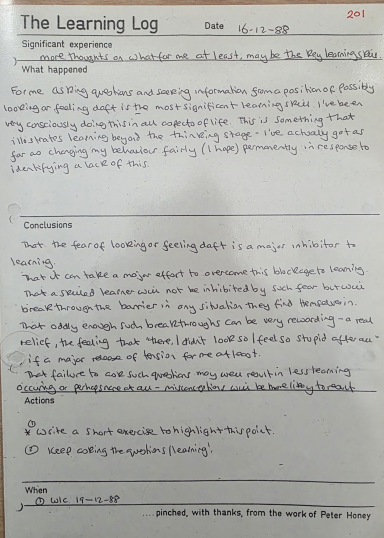 201
The Learning Log Date 16-12-88
Significant experience
more thoughts on what for me at least, may be the key learning skill.
What happened
For me asking questions and seeking information from a position of possibly
looking or feeling daft is the most significant learning skill I've been
very consciously doing this in all aspects of life. This is something that
illustrates learning beyond the thinking stage - I've actually got as
far as changing my behaviour fairly (I hope) permanently in response to
identifying a lack of this.
Conclusions
That the fear of looking or feeling daft is a major inhibitor to
learning.
That it can take a major effort to overcome this blockage to learning.
That a skilled learner will not be inhibited by such fear but will
break through the barrier in any situation they find themselves in.
That oddly enough such breakthroughs can be very rewarding - a real
relief, the feeling that "there, I didn't look so/feel so stupid after all"
if a major release of tension for me at least.
That failure to ask such questions may well result in less learning
occuring or perhaps none at all - misconceptions will be more likely to
Actions
① * Write a short exercise to highlight this point.
② Keep asking the questions/'learning'.
When
① W/C. 19-12-88
.... pinched, with thanks, from the work of Peter Honey